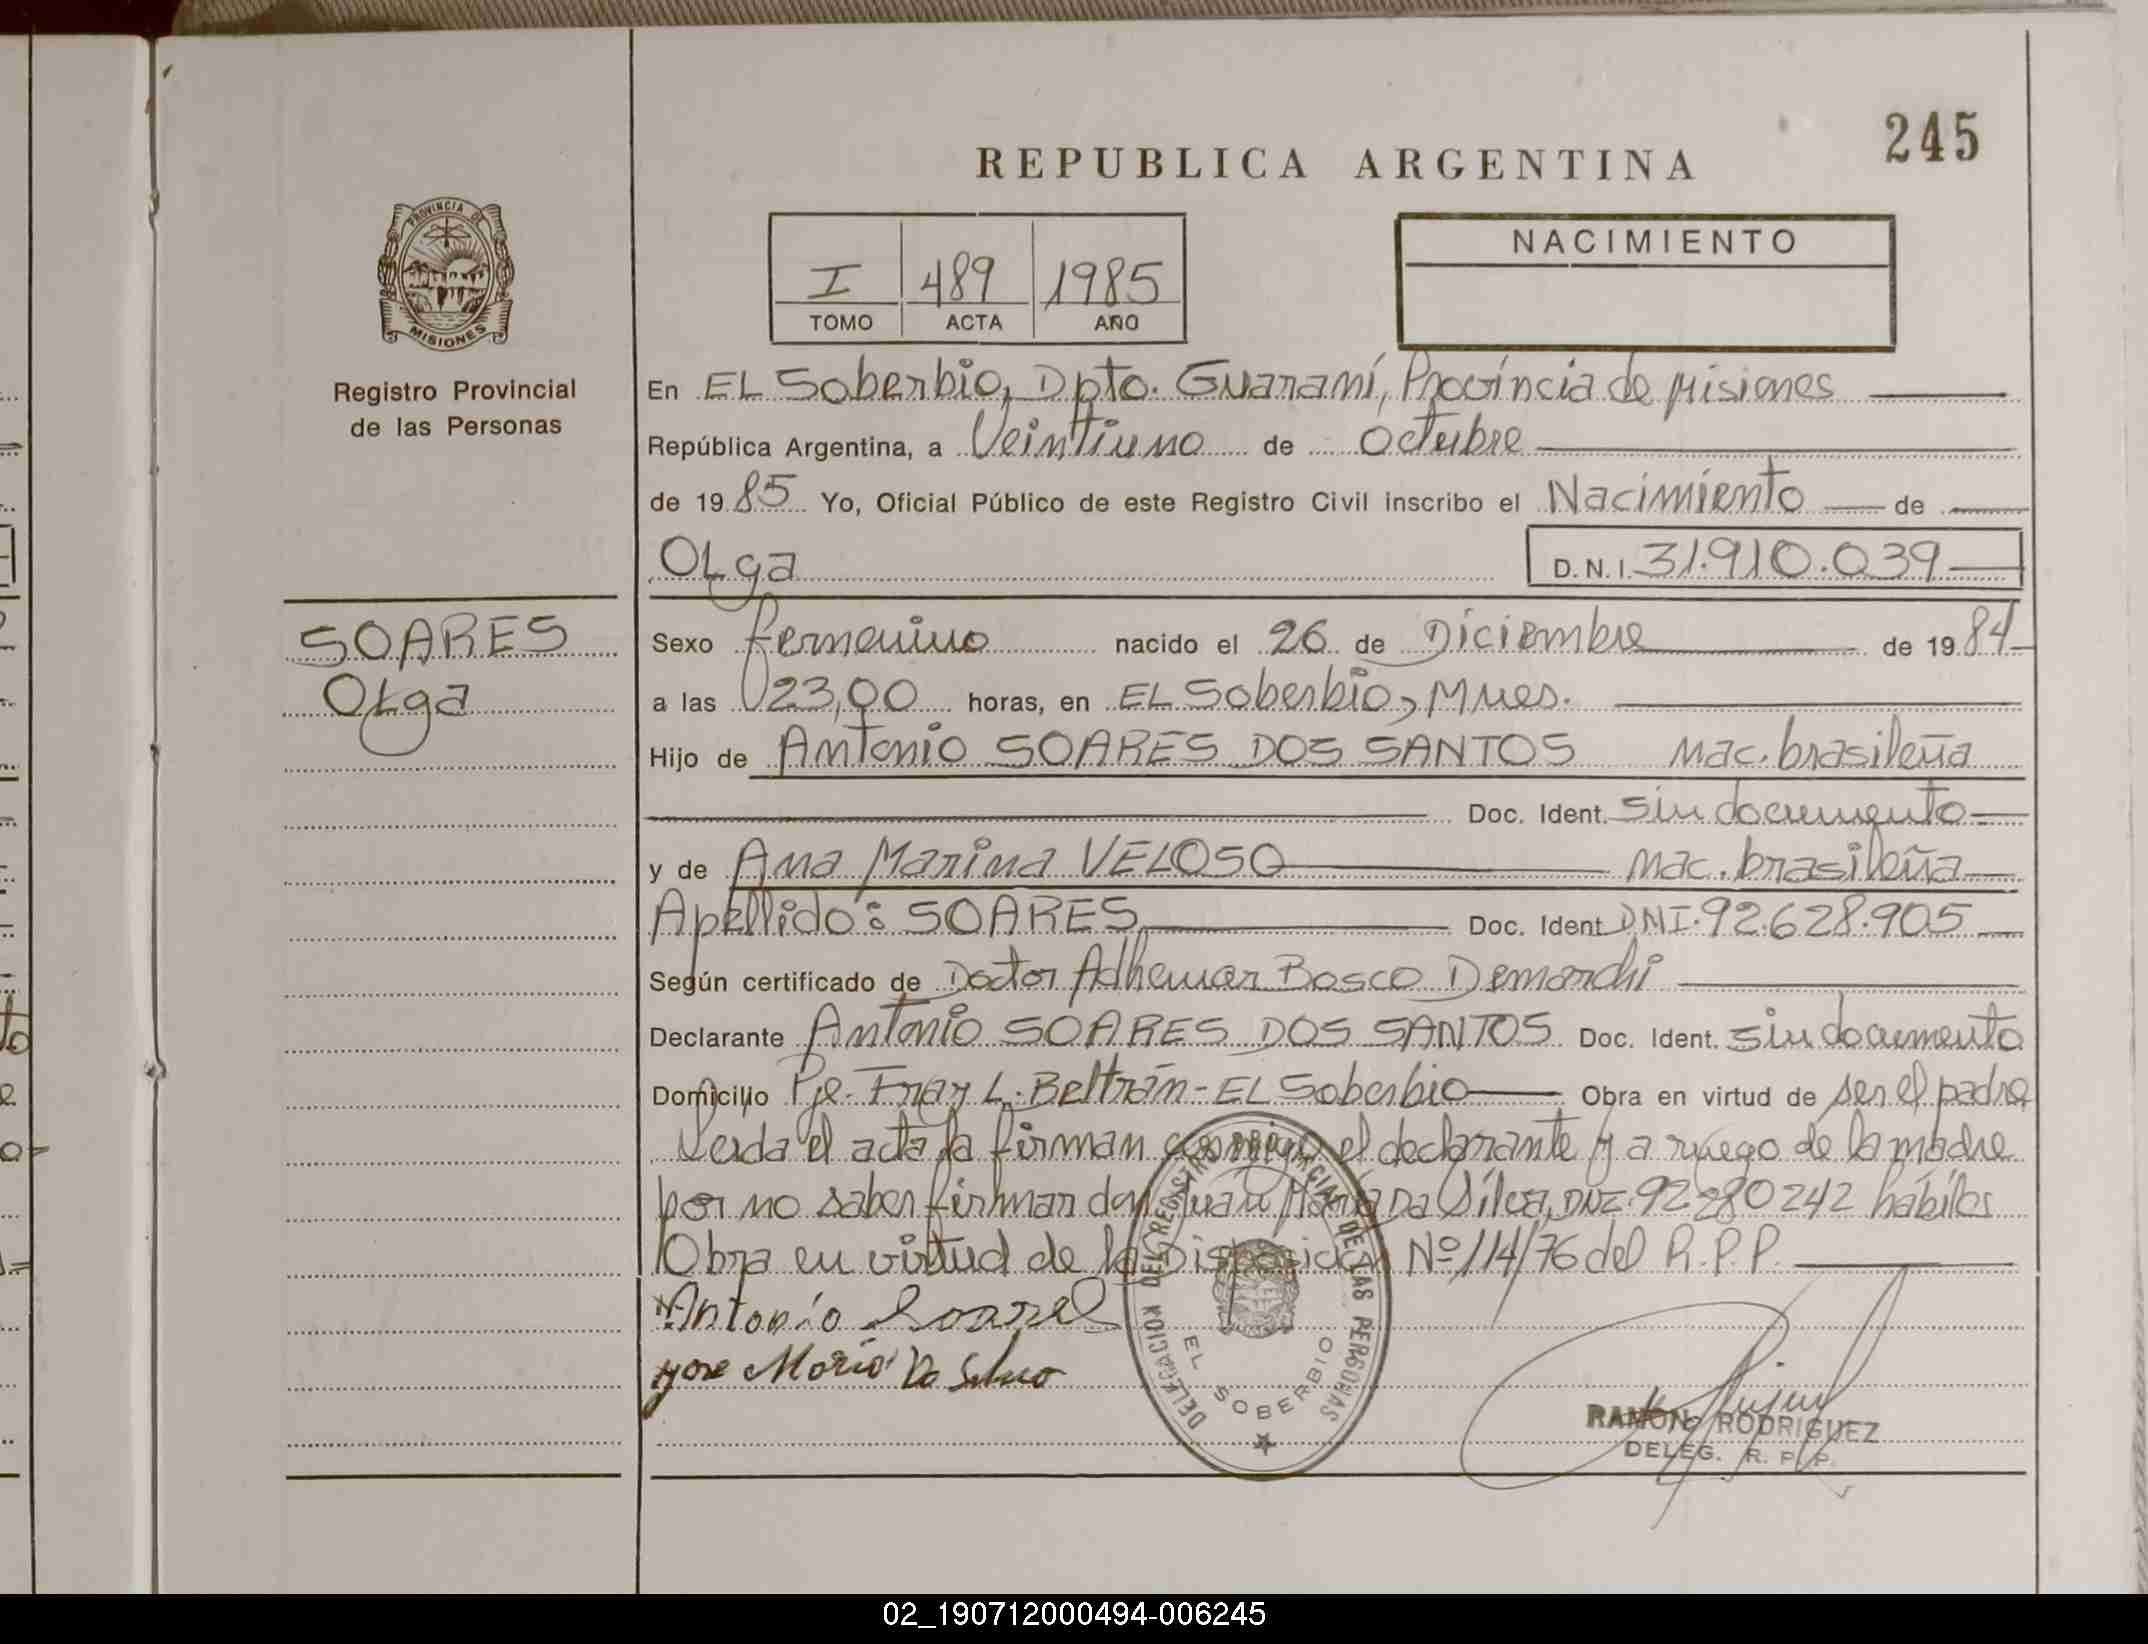 245
REPUBLICA ARGENTINA
PROVINCIA DE
MISIONES
I 489 1985
TOMO ACTA AÑO
NACIMIENTO
Registro Provincial
de las Personas
SOARES
OLga
En EL Soberbio, Dpto. Guaraní, Provincia de Misiones
República Argentina, a Veintiuno de Octubre
de 19 85 Yo, Oficial Público de este Registro Civil inscribo el Nacimiento de
OLga D.N.I. 31.910.039
Sexo femenino nacido el 26 de Diciembre de 19 84
a las 23,00 horas, en EL Soberbio, Mnes.
Hijo de Antonio SOARES DOS SANTOS nac. brasileña
Doc. Ident. sin documento
y de Ana Marina VELOSO nac. brasileña
Apellido: SOARES Doc. Ident. DNI. 92.628.905
Según certificado de Doctor Adhemar Bosco Demarchi
Declarante Antonio SOARES DOS SANTOS Doc. Ident. sin documento
Domicilio Pje. Fray L. Beltrán - EL Soberbio Obra en virtud de ser el padre
Leida el acta la firman conmigo el declarante y a ruego de la madre
por no saber firmar don Juan María Da Silva, DNI. 92280242 hábiles
Obra en virtud de la Disposición Nº 114/76 del R.P.P.
Antonio Soares
María Da Silva
DELEGACION DEL REGISTRO PROVINCIAL DE LAS PERSONAS
EL SOBERBIO
RAMON RODRIGUEZ
DELEG. R. P. P.
02_190712000494-006245